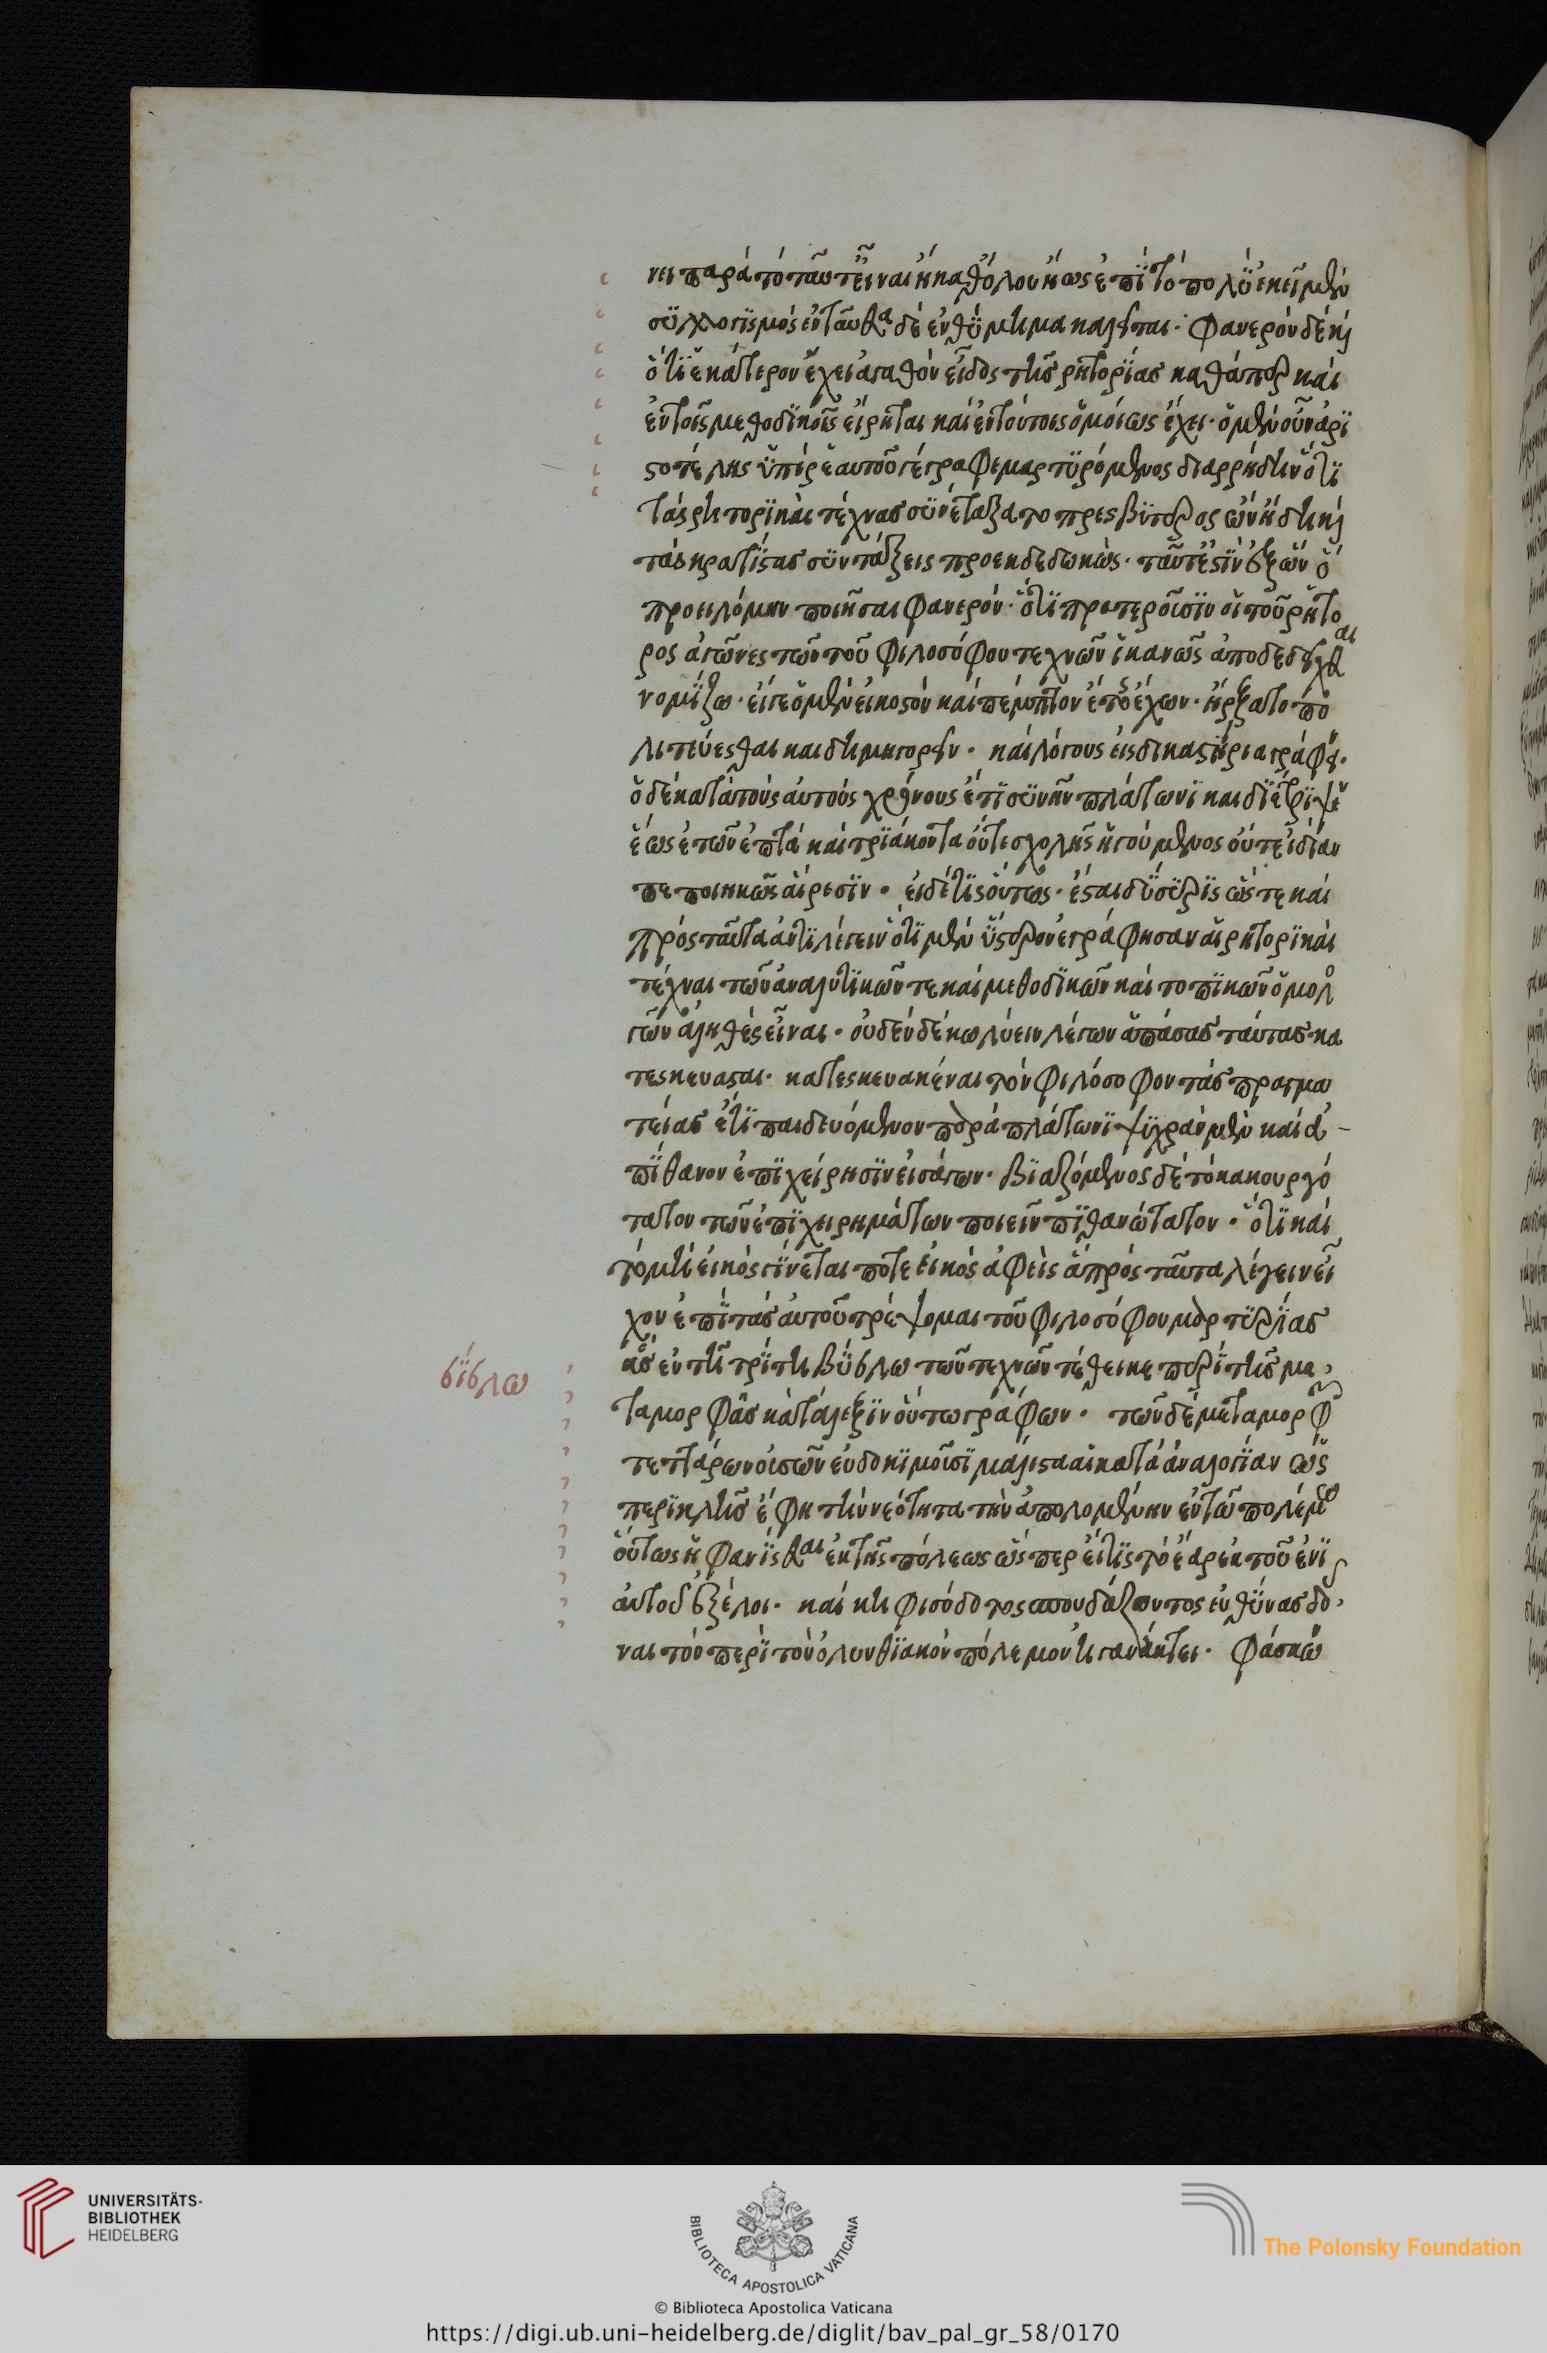 νει παρὰ τὸ ταῦτ εἶναι ἢ καθόλου ἢ ὡς ἐπὶ τὸ πολὺ ἐκεῖ μὲν
συλλογισμὸς ἐνταῦθα δὲ ἐνθύμημα καλεῖται· φανερὸν δὲ καὶ
ὅτι ἑκάτερον ἔχει ἀγαθὸν εἶδος τῆς ρητορίας καθάπερ καὶ
ἐν τοῖς μεθοδικοῖς εἴρηται καὶ ἐν τούτοις ὁμοίως ἔχει· ὁ μὲν οὖν ἀρι
στοτέλης ὑπὲρ ἑαυτοῦ γέγραφε μαρτυρόμενος διαρρήδην ὅτι
τὰς ρητορικὰς τέχνας συνετάξατο πρεσβύτερος ὢν ἤδη καὶ
τὰς κρατίστας συντάξεις προεκδεδωκώς· ταῦτ ἐστὶν ἐξ ὧν ὃ
προειλόμην ποιῆσαι φανερόν· ὅτι προτεροῦσιν οἱ τοῦ ρήτο
ρος ἀγῶνες τῶν τοῦ φιλοσόφου τεχνῶν ἱκανῶς ἀποδεδεῖχθαι
νομίζω· εἴγε ὁ μὲν εἰκοστὸν καὶ πέμπτον ἔτος ἔχων· ἤρξατο πο
λιτεύεσθαι καὶ δημηγορεῖν· καὶ λόγους εἰς δικαστήρια γράφειν·
ὁ δὲ κατὰ τοὺς αὐτοὺς χρόνους ἔτι συνῆν πλάτωνι καὶ διέτριψεν
ἕως ἐτῶν ἑπτὰ καὶ τριάκοντα οὔτε σχολῆς ἡγούμενος οὔτ ἰδίαν
πεποιηκὼς αἵρεσιν· εἰ δέ τις οὕτως· ἔσται δύσερις ὥστε καὶ
πρὸς ταῦτα ἀντιλέγειν ὅτι μὲν ὕστερον ἐγράφησαν αἱ ρητορικαὶ
τέχναι τῶν ἀναλυτικῶν τε καὶ μεθοδικῶν καὶ τοπικῶν ὁμολ
γῶν ἀληθὲς εἶναι· οὐδὲν δὲ κωλύειν λέγων ἁπάσας ταύτας κα
τεσκευασαι· κατεσκευακέναι τὸν φιλόσοφον τὰς πραγμα
τείας ἔτι παιδευόμενον παρὰ πλάτωνι ψυχρὰν μὲν καὶ ἀ-
πίθανον ἐπιχείρησιν εἰσάγων· βιαζόμενος δὲ τὸ κακουργό
τατον τῶν ἐπιχειρημάτων ποιεῖν πιθανώτατον· ὅτι καὶ
τὸ μὴ εἰκὸς γίνεται ποτὲ εἰκὸς ἀφεὶς ἃ πρὸς ταῦτα λέγειν εἶ
χον ἐπὶ τὰς αὐτοῦ τρέψομαι τοῦ φιλοσόφου μαρτυρίας
ἃς ἐν τῇ τρίτῃ βύβλω τῶν τεχνῶν τέθεικε περὶ τῆς με
ταμορφᾶς κατὰ λέξιν οὕτω γράφων· τῶν δὲ μεταμορφ
τεττάρων οὐσῶν εὐδοκιμοῦσι μάλιστα αἱ κατὰ ἀναλογίαν ὡς
περικλῆς ἔφη τὴν νεότητα τὴν ἀπολομένην ἐν τῶ πολέμω
οὕτως ἠφανίσθαι ἐκ τῆς πόλεως ὥσπερ εἴ τις τὸ ἔαρ ἐκ τοῦ ἐνι
αυτοῦ ἐξέλοι· καὶ κηφισόδοτος σπουδάζοντος εὐθύνας δο
ναι τόο περὶ τὸν ὀλυνθιακὸν πόλεμον ἠγανάκτει· φάσκων
βίβλω
UNIVERSITÄTS-
BIBLIOTHEK
HEIDELBERG
BIBLIOTECA APOSTOLICA VATICANA
The Polonsky Foundation
© Biblioteca Apostolica Vaticana
https://digi.ub.uni-heidelberg.de/diglit/bav_pal_gr_58/0170